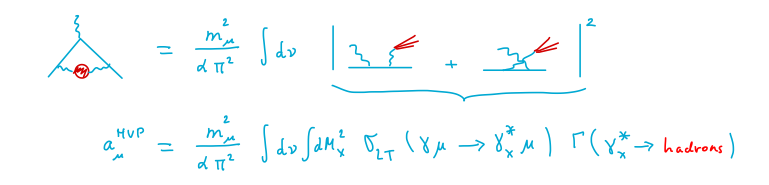 = m_μ^2 / α π^2 ∫ dν | + |^2
a_μ^HVP = m_μ^2 / α π^2 ∫ dν ∫ dM_x^2 σ_LT (γ μ → γ_x^* μ) Γ (γ_x^* → hadrons)